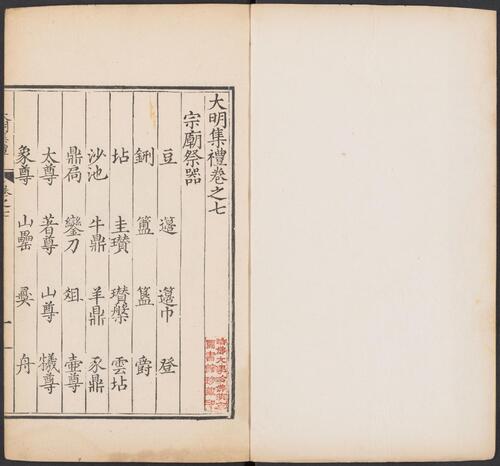 大明集禮卷之七
宗廟祭器
豆 籩 籩巾 登
鉶 簠 簋 爵
坫 圭瓚 瓚槃 雲坫
沙池 牛鼎 羊鼎 豕鼎
鼎局 鑾刀 俎 壺尊
太尊 著尊 山尊 犧尊
象尊 山罍 彜 舟
卷之七
一